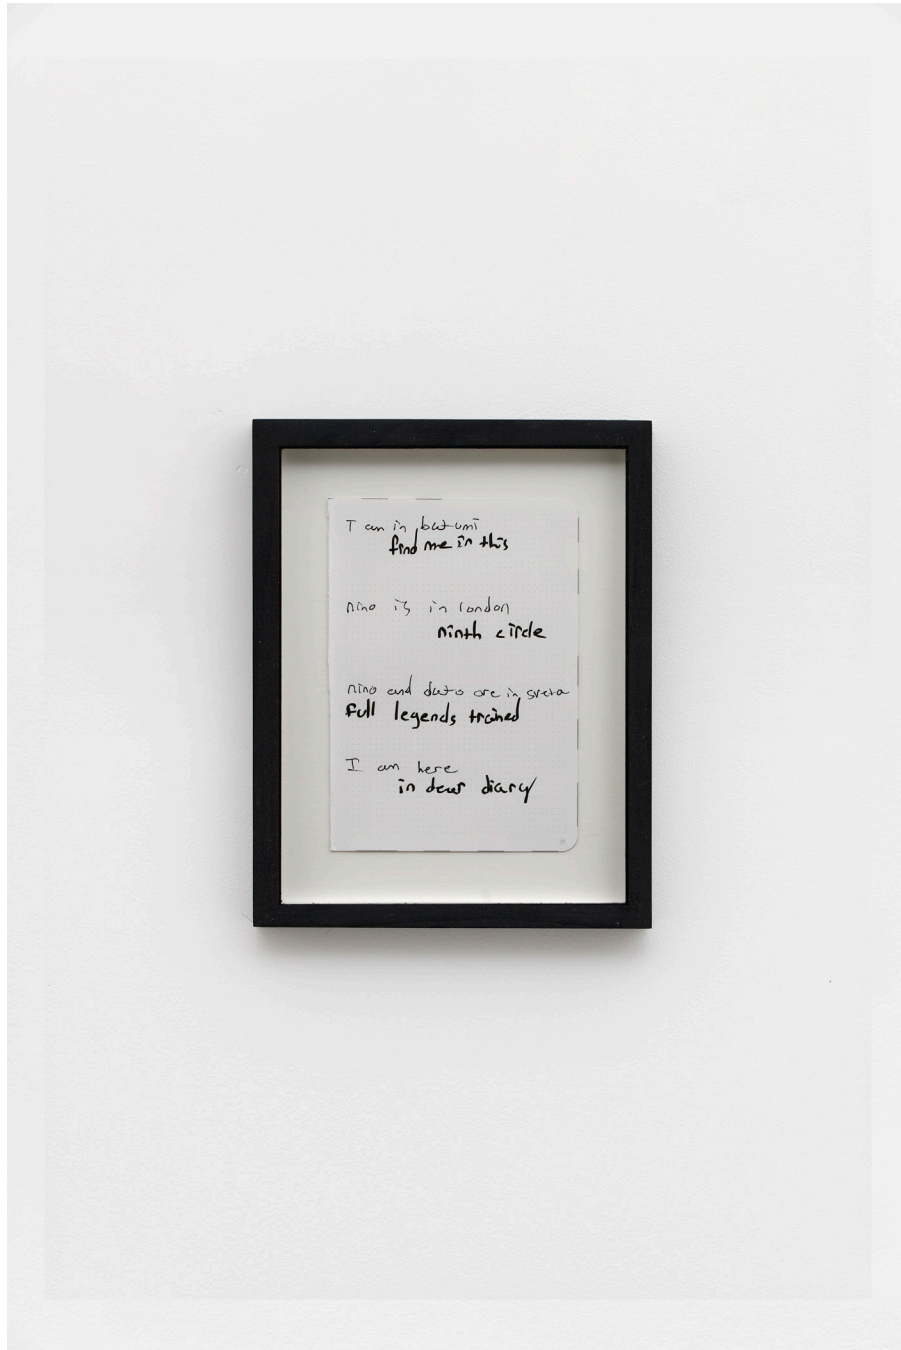 I am in batumi
find me in this
nino is in london
ninth circle
nino and dato are in sveta
full legends trained
I am here
in dear diary